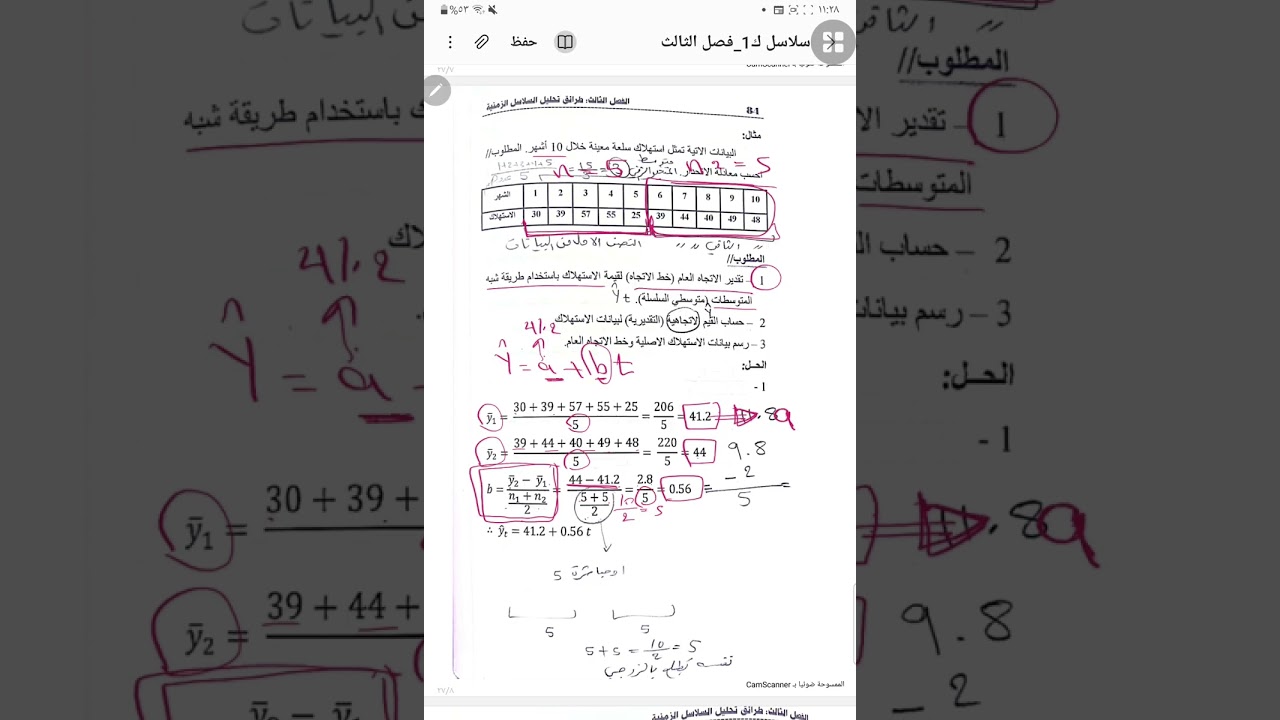 ١١:٢٨
٥٣%
سلاسل ك1_فصل الثالث
حفظ
الممسوحة ضوئيا بـ CamScanner
٢٧/٧
84
الفصل الثالث: طرائق تحليل السلاسل الزمنية
مثال:
البيانات الاتية تمثل استهلاك سلعة معينة خلال 10 أشهر. المطلوب//
احسب معادلة الانحدار.
n 2 = 5
الشهر 1 2 3 4 5 6 7 8 9 10
الاستهلاك 30 39 57 55 25 39 44 40 49 48
النصف الاول من البيانات
〃 الثاني 〃 〃
المطلوب//
1 – تقدير الاتجاه العام (خط الاتجاه) لقيمة الاستهلاك باستخدام طريقة شبه
المتوسطات (متوسطي السلسلة). Ŷt
2 – حساب القيم الاتجاهية (التقديرية) لبيانات الاستهلاك
3 – رسم بيانات الاستهلاك الاصلية وخط الاتجاه العام.
41.2
Ŷ = a + b t
الحل:
1 -
ȳ₁ = (30 + 39 + 57 + 55 + 25)/5 = 206/5 = 41.2 .8a
ȳ₂ = (39 + 44 + 40 + 49 + 48)/5 = 220/5 = 44 9.8
b = (ȳ₂ − ȳ₁)/((n₁ + n₂)/2) = (44 − 41.2)/((5 + 5)/2) = 2.8/5 = 0.56 = −2/5 =
10/2 = 5
∴ ŷt = 41.2 + 0.56 t
او مباشرة 5
5 5
5 + 5 = 10/2 = 5
الممسوحة ضوئيا بـ CamScanner
٢٧/٨
الفصل الثالث: طرائق تحليل السلاسل الزمنية